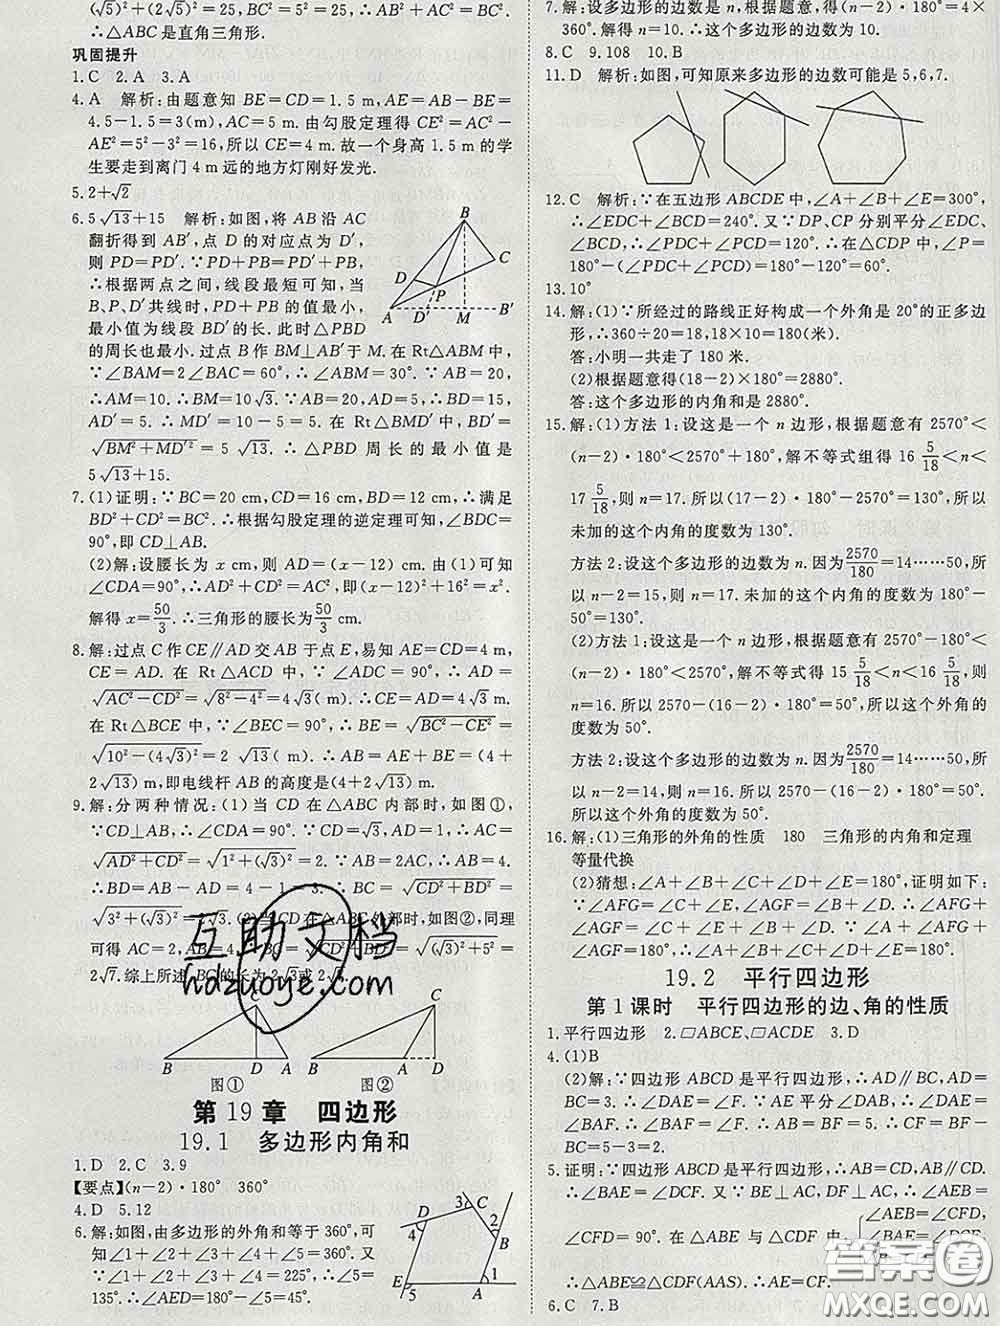 (√5)²+(2√5)²=25, BC²=5²=25, ∴AB²+AC²=BC².
∴△ABC是直角三角形.
巩固提升
1.C 2.A 3.A
4.A 解析:由题意知 BE=CD=1.5 m,AE=AB-BE=
4.5-1.5=3(m),AC=5 m.由勾股定理得 CE²=AC²-
AE²=5²-3²=16,所以 CE=4 m.故一个身高 1.5 m的学
生要走到离门 4 m 远的地方灯刚好发光.
5.2+√2
6.5√13+15 解析:如图,将 AB 沿 AC
翻折得到 AB′,点 D 的对应点为 D′,
则 PD=PD′.∴PD+PB=PD′+PB.
∴根据两点之间,线段最短可知,当
B、P、D′共线时,PD+PB 的值最小,
最小值为线段 BD′的长.此时△PBD
的周长也最小.过点 B 作 BM⊥AB′于 M.在 Rt△ABM 中,
∵∠BAM=2∠BAC=60°,∴∠ABM=30°.∵AB=20,
∴AM=10.∴BM=10√3.∵AB=20,AD=5,∴BD=15,
AD′=5.∴MD′=10-5=5.在 Rt△BMD′中,BD′=
√(BM²+MD′²)=5√13.∴△PBD 周长的最小值是
5√13+15.
7.(1)证明:∵BC=20 cm,CD=16 cm,BD=12 cm,∴满足
BD²+CD²=BC².∴根据勾股定理的逆定理可知,∠BDC=
90°,即 CD⊥AB.
(2)解:设腰长为 x cm,则 AD=(x-12) cm.由(1)可知
∠CDA=90°,∴AD²+CD²=AC²,即(x-12)²+16²=x².
解得 x=50/3.∴三角形的腰长为50/3 cm.
8.解:过点 C 作 CE∥AD 交 AB 于点 E,易知 AE=CD=4 m,
CE=AD.在 Rt△ACD 中,∵∠ADC=90°,∴AD=
√(AC²-CD²)=√(8²-4²)=4√3(m).∴CE=AD=4√3 m.
在 Rt△BCE 中,∵∠BEC=90°,∴BE=√(BC²-CE²)=
√(10²-(4√3)²)=2√13(m).∴AB=AE+BE=(4+
2√13) m,即电线杆 AB 的高度是(4+2√13) m.
9.解:分两种情况:(1)当 CD 在△ABC 内部时,如图①,
∵CD⊥AB,∴∠CDA=90°.∵CD=√3,AD=1,∴AC=
√(AD²+CD²)=√(1²+(√3)²)=2.∵AB=2AC,∴AB=4.
∴BD=AB-AD=4-1=3.∴BC=√(CD²+BD²)=
√(3²+(√3)²)=2√3.(2)当CD在△ABC外部时,如图②,同理
可得 AC=2,AB=4,BC=√(CD²+BD²)=√((√3)²+5²)=
2√7.综上所述,BC的长为2√3或2√7.
B
D
C
P
A
D′
M
B′
C
B
D
A
图①
C
B
A
D
图②
第 19 章 四边形
19.1 多边形内角和
1.D 2.C 3.9
【要点】(n-2)·180° 360°
4.D 5.12
6.解:如图,由多边形的外角和等于360°,可
知∠1+∠2+∠3+∠4+∠5=360°.又
∵∠1+∠2+∠3+∠4=225°,∴∠5=
135°.∴∠AED=180°-∠5=45°.
D
3
C
4
2
B
E
5
A
1
7.解:设多边形的边数是 n,根据题意,得(n-2)·180°=4×
360°.解得 n=10.∴这个多边形的边数为 10.
8.C 9.108 10.B
11.D 解析:如图,可知原来多边形的边数可能是 5,6,7.
12.C 解析:∵在五边形 ABCDE 中,∠A+∠B+∠E=300°,
∴∠EDC+∠BCD=240°.又∵DP、CP 分别平分∠EDC、
∠BCD,∴∠PDC+∠PCD=120°.∴在△CDP 中,∠P=
180°-(∠PDC+∠PCD)=180°-120°=60°.
13.10°
14.解:(1)∵所经过的路线正好构成一个外角是 20°的正多边
形,∴360÷20=18,18×10=180(米).
答:小明一共走了 180 米.
(2)根据题意得(18-2)×180°=2880°.
答:这个多边形的内角和是 2880°.
15.解:(1)方法 1:设这是一个 n 边形,根据题意有 2570°<
(n-2)·180°<2570°+180°,解不等式组得 16 5/18<n<
17 5/18,则 n=17.所以(17-2)·180°-2570°=130°.所以
未加的这个内角的度数为 130°.
方法 2:设这个多边形的边数为 n.因为2570/180=14……50,所
以 n-2=15,则 n=17.未加的这个内角的度数为 180°-
50°=130°.
(2)方法 1:设这是一个 n 边形,根据题意有 2570°-180°<
(n-2)·180°<2570°,解不等式得 15 5/18<n<16 5/18,则
n=16.所以 2570°-(16-2)·180°=50°.所以这个外角的
度数为 50°.
方法 2:设这个多边形的边数为 n.因为2570/180=14……50,
所以 n-2=14,则 n=16.2570°-(16-2)·180°=50°.
所以这个外角的度数为 50°.
16.解:(1)三角形的外角的性质 180 三角形的内角和定理
等量代换
(2)猜想:∠A+∠B+∠C+∠D+∠E=180°,证明如下:
∵∠AFG=∠C+∠E,∠AGF=∠B+∠D,∠A+
∠AFG+∠AGF=180°,∴∠A+∠B+∠C+∠D+∠E=180°.
19.2 平行四边形
第 1 课时 平行四边形的边、角的性质
1.平行四边形 2.▱ABCE、▱ACDE 3.D
4.(1)B
(2)解:∵四边形 ABCD 是平行四边形,∴AD∥BC,AD=
BC=3.∴∠DAE=∠F.∵AE 平分∠DAB,∴∠DAE=
∠BAE.∴∠BAE=∠F.∴AB=BF=5.∴CF=BF-
BC=5-3=2.
5.证明:∵四边形 ABCD 是平行四边形,∴AB=CD,AB∥CD.
∴∠BAE=∠DCF.又∵BE⊥AC,DF⊥AC,∴∠AEB=
∠CFD=90°.在△ABE 与△CDF 中,∵∠AEB=∠CFD,
∠BAE=∠DCF,
∴△ABE≌△CDF(AAS).∴BE=DF.
6.C 7.B
互助文档
hdzuoye.com
答案圈
MXQE.COM